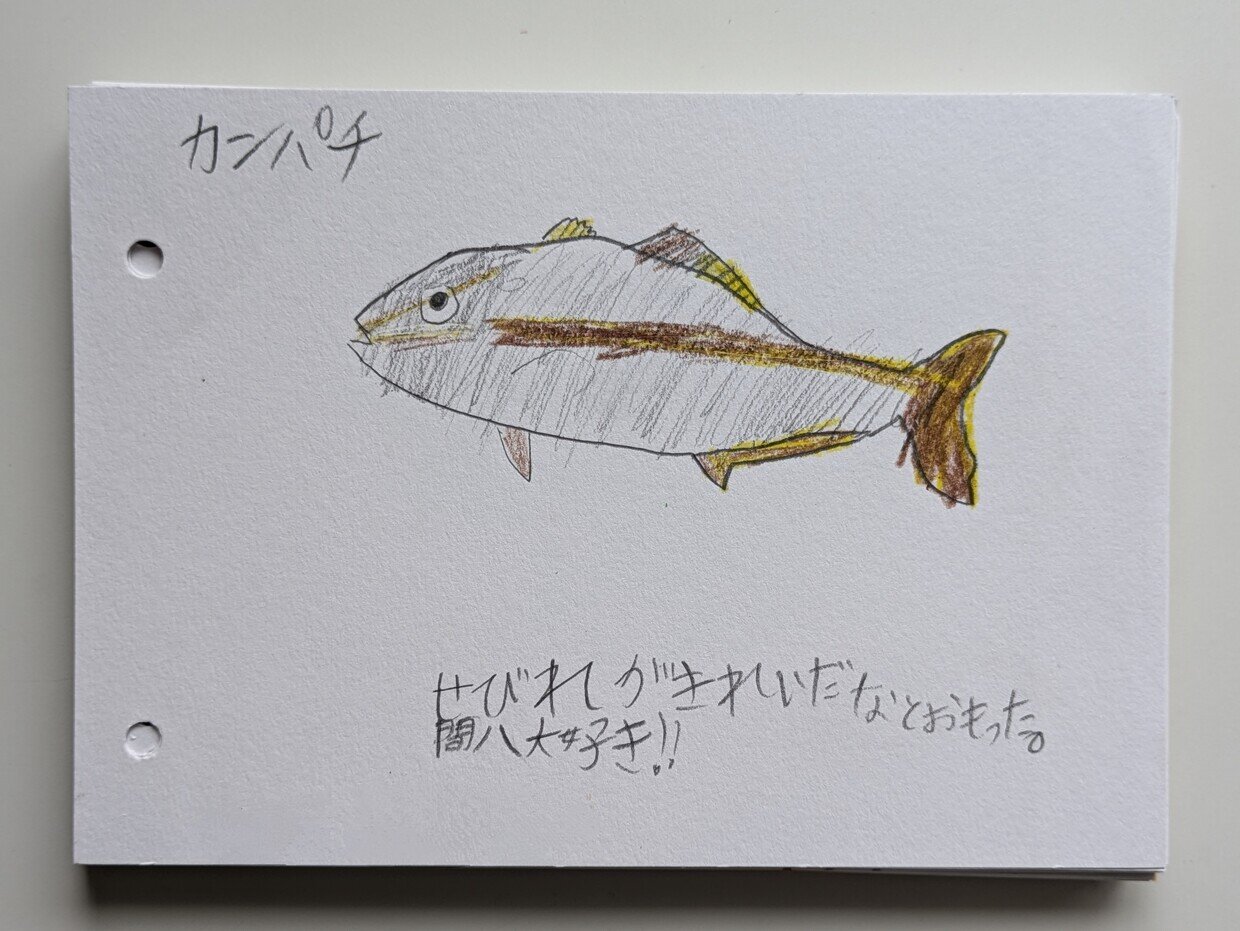 カンパチ
せびれがきれいだなとおもった。
間八大好き!!